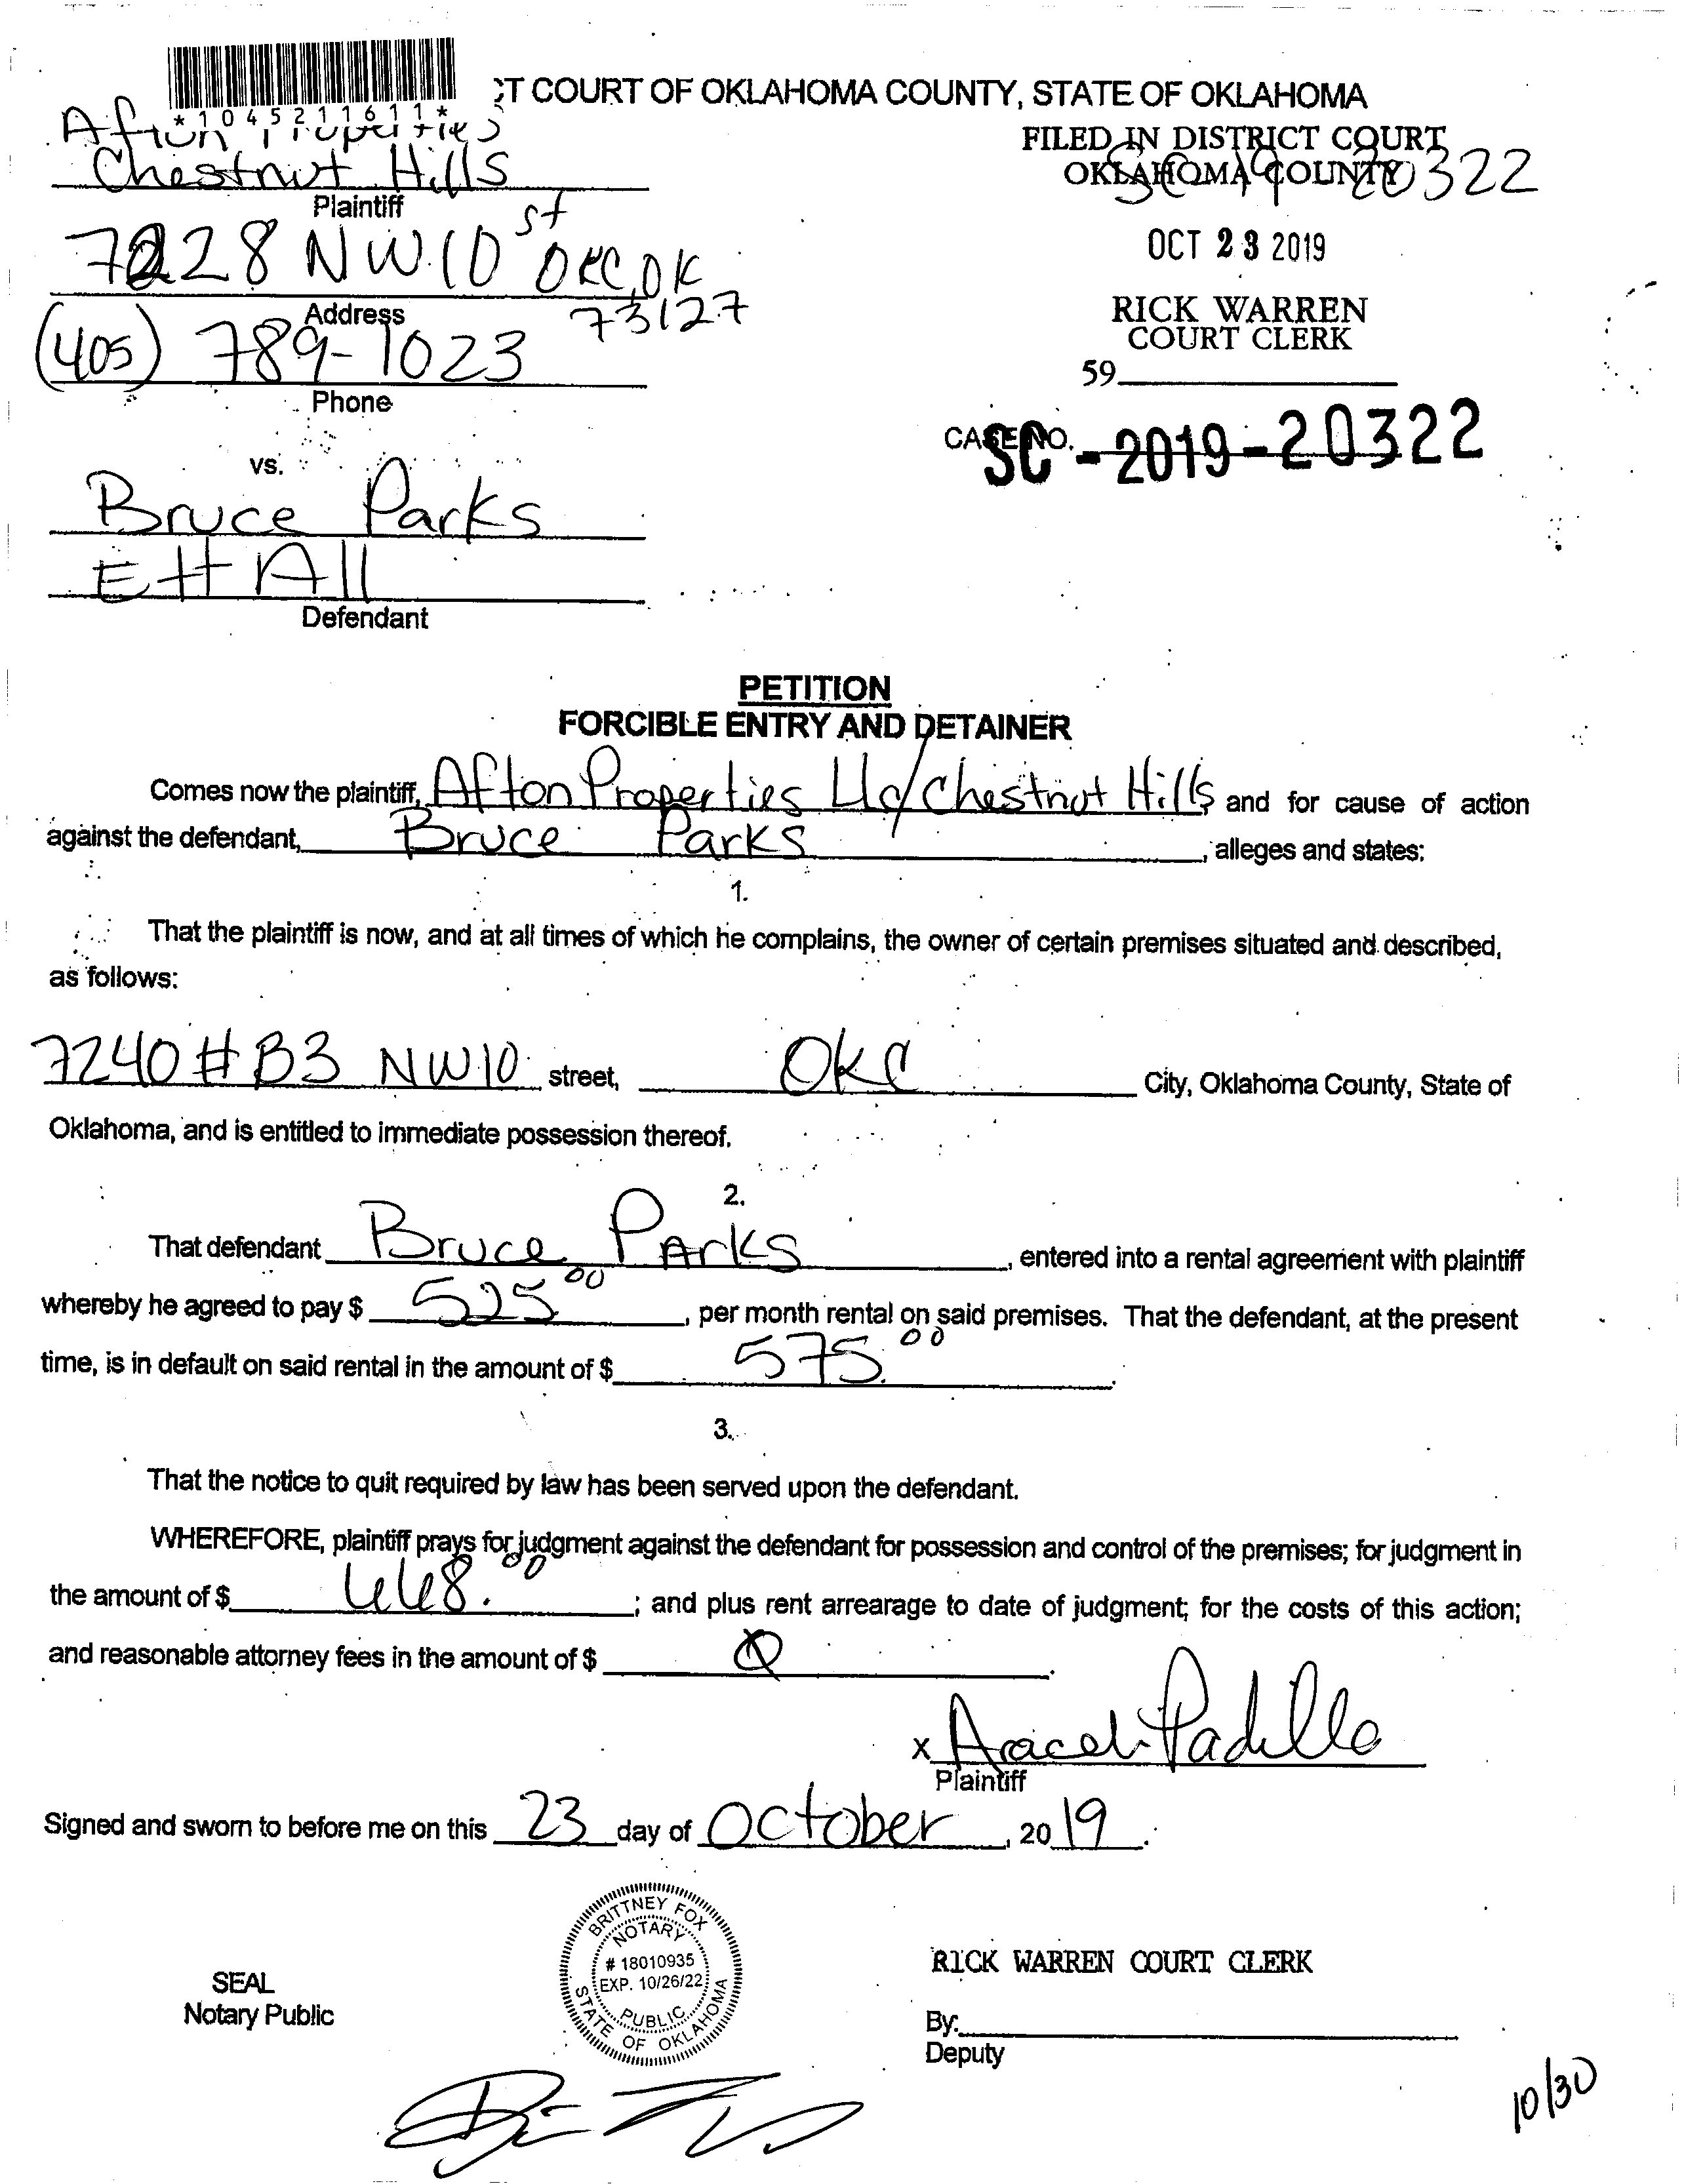 *1045211611*
CT COURT OF OKLAHOMA COUNTY, STATE OF OKLAHOMA
Afton Properties
Chestnut Hills
Plaintiff
7228 NW 10 st OKC, OK
73127
Address
(405) 789-1023
Phone
FILED IN DISTRICT COURT
OKLAHOMA COUNTY
SC 19 20322
OCT 23 2019
RICK WARREN
COURT CLERK
59
CASE NO. SC-2019-20322
vs.
Bruce Parks
Ett All
Defendant
PETITION
FORCIBLE ENTRY AND DETAINER
Comes now the plaintiff, Afton Properties Llc/Chestnut Hills and for cause of action
against the defendant, Bruce Parks, alleges and states:
1.
That the plaintiff is now, and at all times of which he complains, the owner of certain premises situated and described,
as follows:
7240 # B3 NW 10 street, OKC City, Oklahoma County, State of
Oklahoma, and is entitled to immediate possession thereof.
2.
That defendant Bruce Parks, entered into a rental agreement with plaintiff
whereby he agreed to pay $ 525.00, per month rental on said premises. That the defendant, at the present
time, is in default on said rental in the amount of $ 575.00.
3.
That the notice to quit required by law has been served upon the defendant.
WHEREFORE, plaintiff prays for judgment against the defendant for possession and control of the premises; for judgment in
the amount of $ 668.00; and plus rent arrearage to date of judgment; for the costs of this action;
and reasonable attorney fees in the amount of $ 0.
x Araceli Padilla
Plaintiff
Signed and sworn to before me on this 23 day of October, 2019.
BRITTNEY FOX
NOTARY
# 18010935
EXP. 10/26/22
PUBLIC
STATE OF OKLAHOMA
SEAL
Notary Public
RICK WARREN COURT CLERK
By:
Deputy
10/30